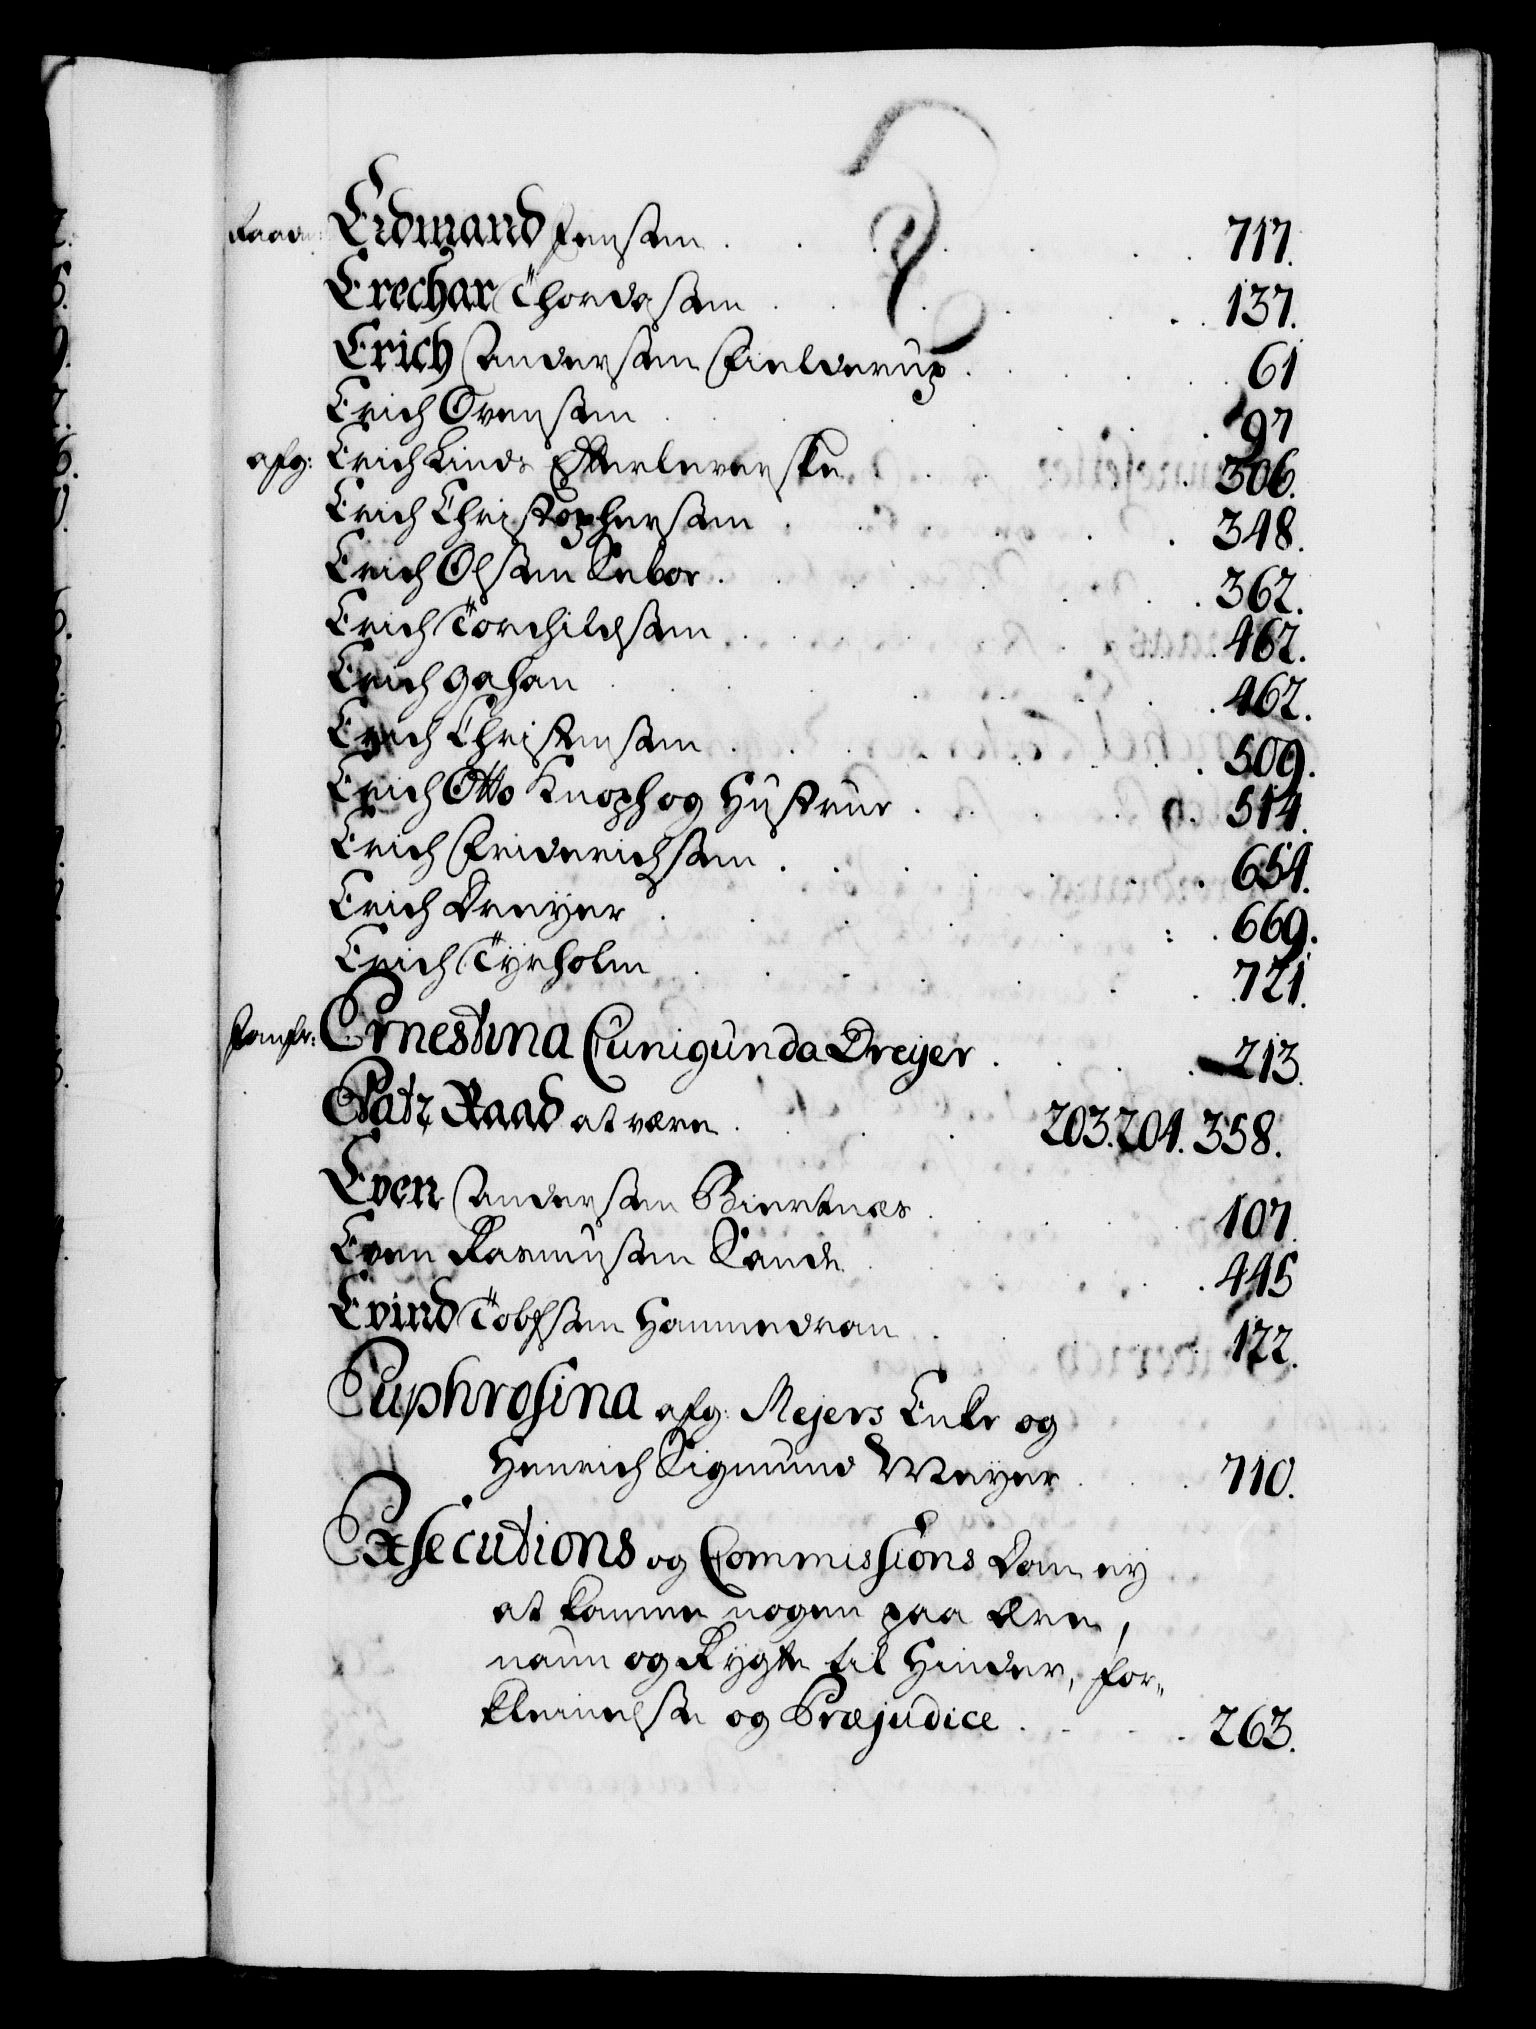 E
Raadm: Erdmand Jensen . . . . . 717.
Erechar Thordesen . . . . . 137.
Erich Andersen Fielderup . . . . 61
Erich Svensen . . . . . 97
afg: Erich Linds Efterleverske . . . . 306.
Erich Christophersen . . . . . 348.
Erich Olsen Sebor . . . . . 362.
Erich Torchildsen . . . . . 462.
Erich Gahan . . . . . 462.
Erich Christensen . . . . . 509.
Erich Otto Knoph og Hustrue . . . 514.
Erich Friderichsen . . . . . 654.
Erich Dreyer . . . . . 669.
Erich Tyrholm . . . . . 721.
Jomfr: Ernestina Cunigunda Dreyer . . . 213.
Etatz Raad at være . . . 203. 204. 358.
Even Andersen Biertnæs . . . 107.
Even Rasmusen Sande . . . 445
Evind Tolefsen Hammedran . . . 122.
Euphrosina afg: Mejers Enke og
Henrich Sigmund Meyer . . . 710.
Exsecutions og Commissions Dom ey
at komme nogen paa Ære,
naun og Rygte til Hinder, for-
kleinelse og Præjudice . . . . 263.